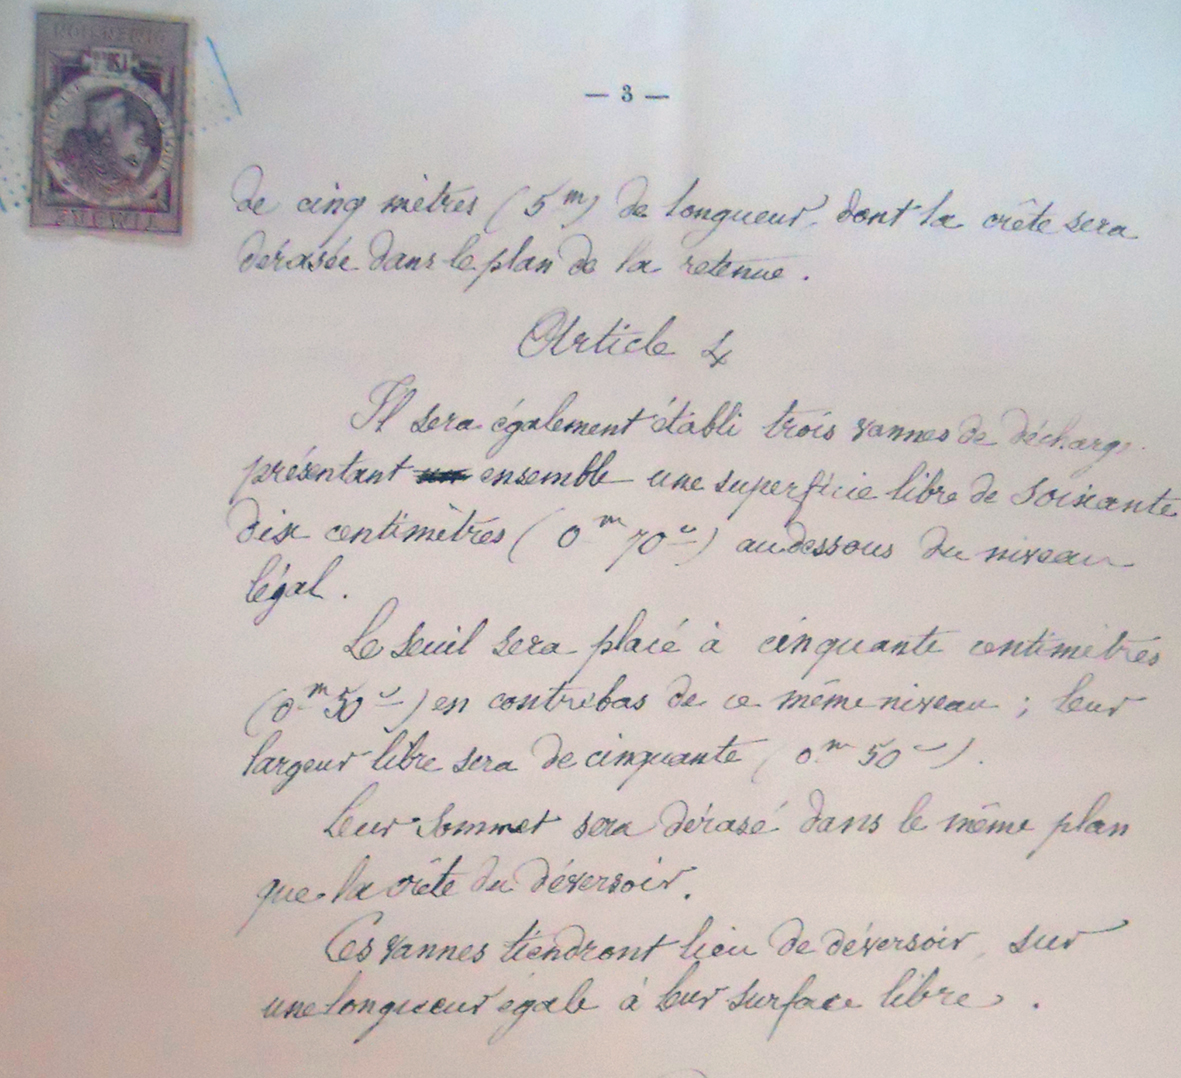 — 3 —
de cinq mètres (5 m) de longueur, dont la crête sera
dérasée dans le plan de la retenue.
Article 4
Il sera également établi trois vannes de décharge
présentant ensemble une superficie libre de soixante
dix centimètres (0 m 70 c) au dessous du niveau
légal.
Le seuil sera placé à cinquante centimètres
(0 m 50 c) en contrebas de ce même niveau ; leur
largeur libre sera de cinquante (0 m 50 c).
Leur sommet sera dérasé dans le même plan
que la crête du déversoir.
Ces vannes tiendront lieu de déversoir, sur
une longueur égale à leur surface libre.